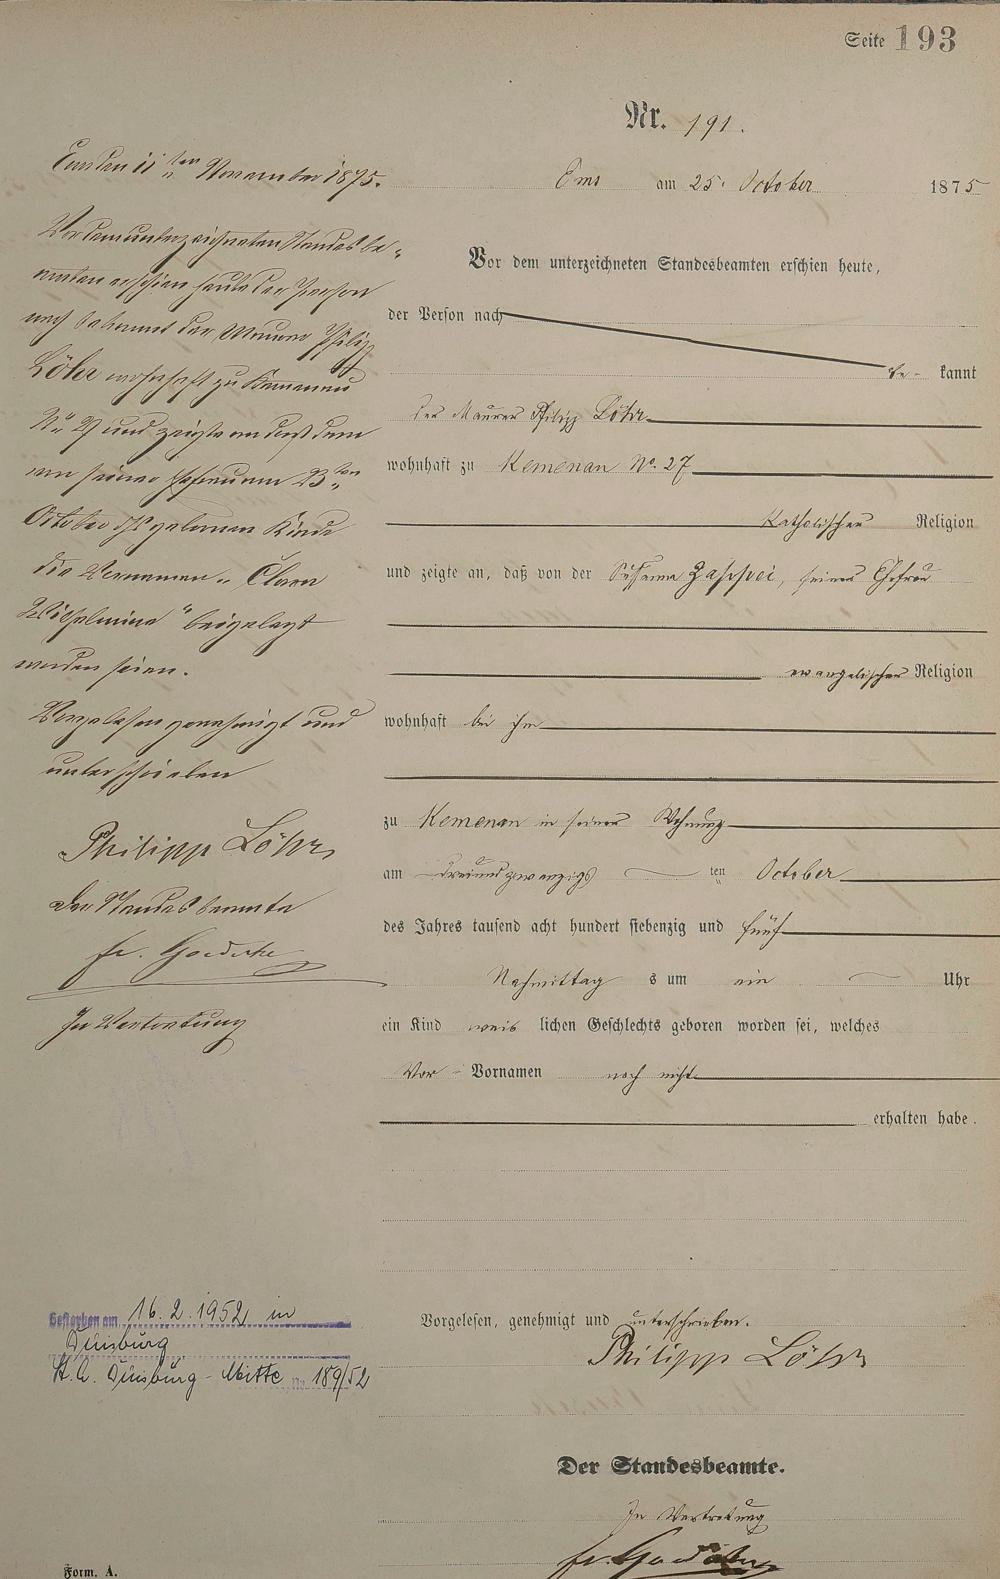 Seite 193
Nr. 191.
Ems am 25. October 1875
Vor dem unterzeichneten Standesbeamten erschien heute,
der Person nach
be- kannt
der Maurer Philipp Löhr
wohnhaft zu Kemenau No. 27
katholischer Religion
und zeigte an, daß von der Susanna Zappei, seiner Ehefrau
evangelischer Religion
wohnhaft bei ihm
zu Kemenau in seiner Wohnung
am dreiundzwanzigs ten October
des Jahres tausend acht hundert siebenzig und fünf
Nachmittag s um ein Uhr
ein Kind weib lichen Geschlechts geboren worden sei, welches
Vor - Vornamen noch nicht
erhalten habe.
Vorgelesen, genehmigt und unterschrieben.
Philipp Löhr
Der Standesbeamte.
In Vertretung
fr. Goedecke
Ems den 11ten November 1875.
Vor dem unterzeichneten Standesbe-
amten erschien heute der Person
nach bekannt der Maurer Philipp
Löhr wohnhaft zu Kemenau
No 27 und zeigte an daß dem
von seiner Ehefrau am 23ten
October geborenen Kinde
die Vornamen „Clara
Wilhelmine" beigelegt
worden seien.
Vorgelesen genehmigt und
unterschrieben
Philipp Löhr
Der Standesbeamte
fr. Goedecke
In Vertretung
Gestorben am 16.2.1952 in
Duisburg
St. A. Duisburg-Mitte No 189/52
Form. A.